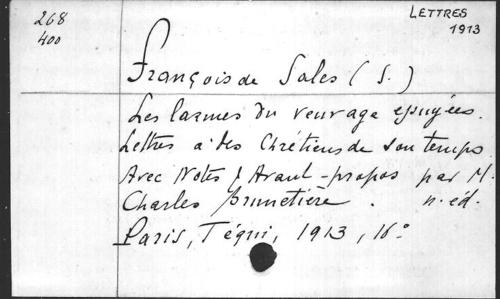 268
400
LETTRES
1913
François de Sales (S.)
Les larmes du veuvage essuyées.
Lettres à des Chrétiens de son temps
Avec Notes & Avant-propos par M.
Charles Brunetière. n. éd.
Paris, Téqui, 1913, 16°